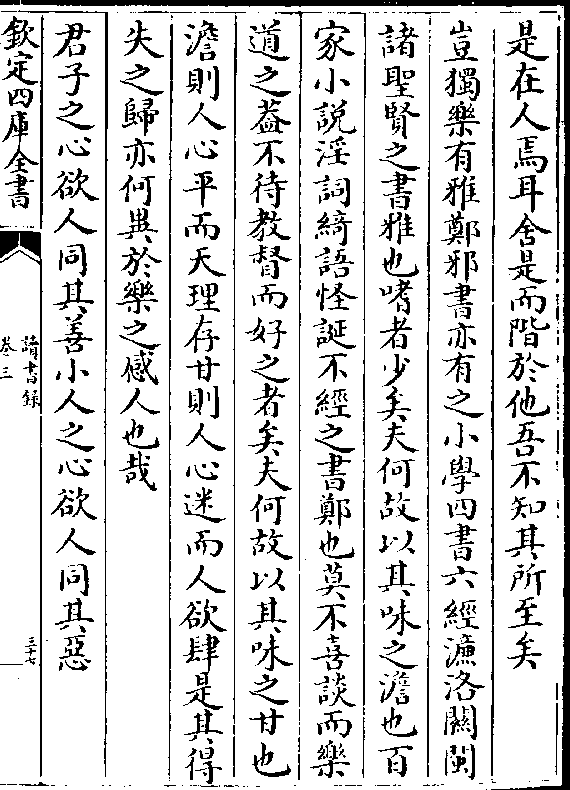 是在人焉耳舍是而階於他吾不知其所至矣
豈獨樂有雅鄭邪書亦有之小學四書六經濂洛關閩
諸聖賢之書雅也嗜者少矣夫何故以其味之澹也百
家小說淫詞綺語怪誕不經之書鄭也莫不喜談而樂
道之葢不待教督而好之者矣夫何故以其味之甘也
澹則人心平而天理存甘則人心迷而人欲肆是其得
失之歸亦何異於樂之感人也哉
君子之心欲人同其善小人之心欲人同其惡
欽定四庫全書
讀書錄
卷三
三十七